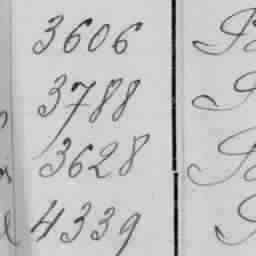 3606
3788
3628
4339